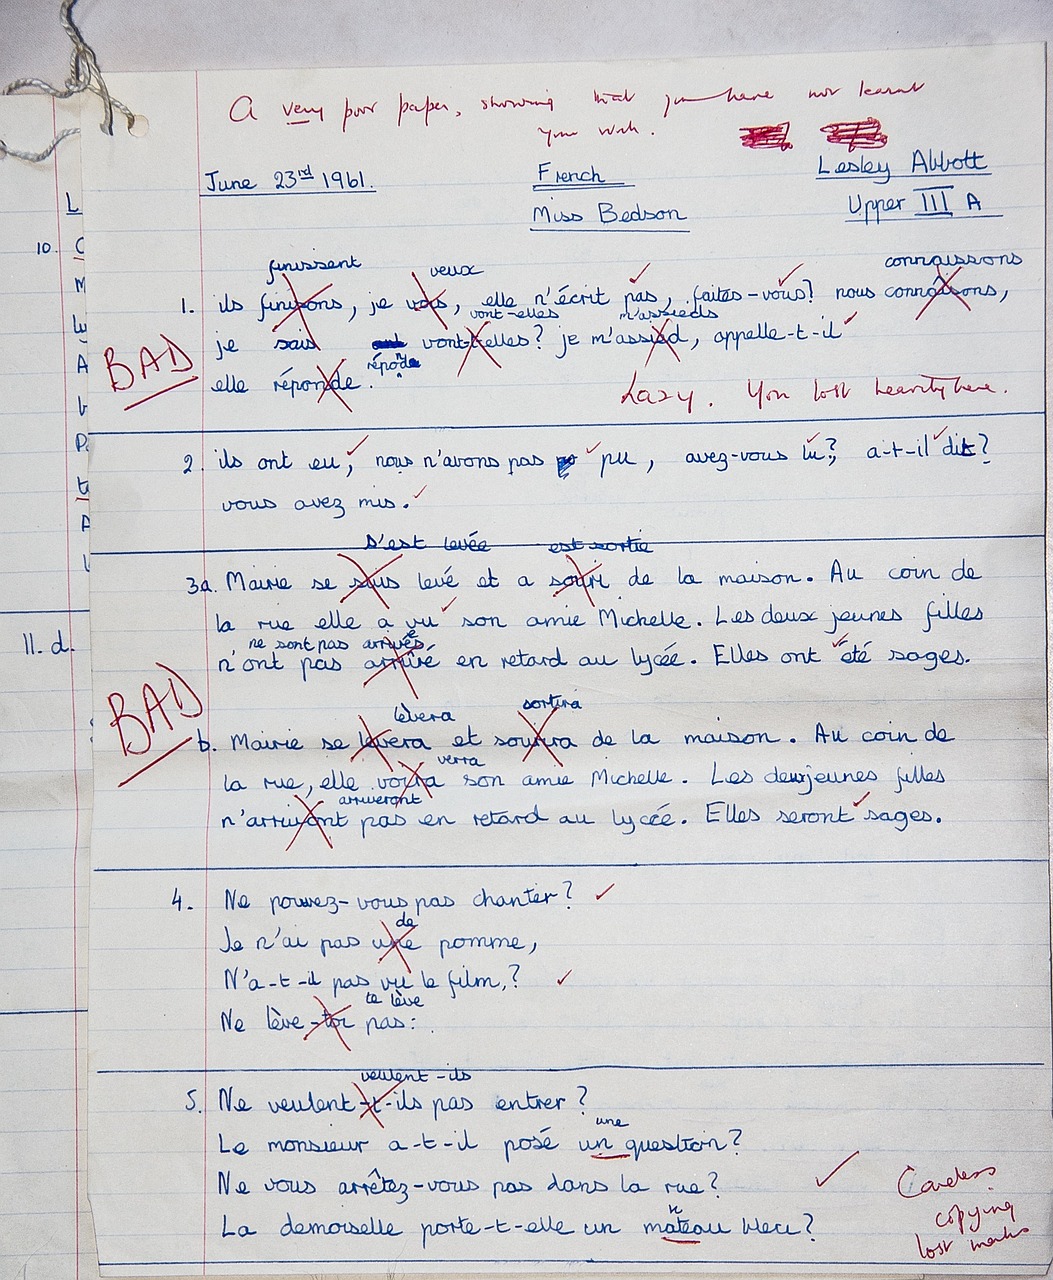 A very poor paper, showing that you have not learnt
your work.
June 23rd 1961.
French
Lesley Abbott
Miss Bedson
Upper III A
finissent veux connaissons
1. ils finisons, je vois, elle n'écrit pas, faites-vous? nous connaisons,
vont-elles m'assieds
BAD
je sais vont-t-elles? je m'assied, appelle-t-il
réponde
elle réponde.
Lazy. You lost heavily here.
2. ils ont eu, nous n'avons pas pu, avez-vous lu?, a-t-il dit?
vous avez mis.
s'est levée est sortie
3a. Mairie se suis levé et a souri de la maison. Au coin de
la rue elle a vu son amie Michelle. Les deux jeunes filles
ne sont pas arrivées
n'ont pas arrivé en retard au lycée. Elles ont été sages.
BAD
lèvera sortira
b. Mairie se levera et sourira de la maison. Au coin de
verra
la rue, elle voira son amie Michelle. Les deux jeunes filles
arriveront
n'arrivont pas en retard au lycée. Elles seront sages.
4. Ne pouvez-vous pas chanter?
de
Je n'ai pas une pomme,
N'a-t-il pas vu le film,?
te lève
Ne lève-toi pas:
veulent-ils
5. Ne veulent-t-ils pas entrer?
une
Le monsieur a-t-il posé un question?
Ne vous arrêtez-vous pas dans la rue?
n
La demoiselle porte-t-elle un mateau bleu?
Careless
copying
lost marks
10.
11. d.